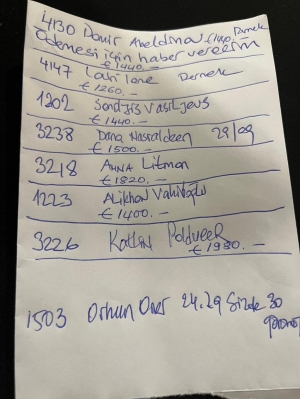 4130 Damir Dernek
Ödemesi için haber vereelim
€1440.-
4147 Lari Dernek
€1260.-
1202 Sandjis Vasiljevs
€1440.-
3238 Dana Nasraldeen 29/09
€1500.-
3218 Anna Litman
€1820.-
1223 Alikhan
€1400.-
3226 Katlin Poldveer
€1980.-
1503 Orhun Oner 24.29 Sizde 30